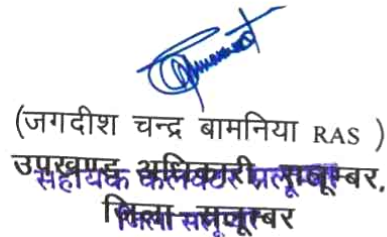 (जगदीश चन्द्र बामनिया RAS )
उपखण्ड अधिकारी, सलूम्बर,
सहायक कलक्टर
जिला सलूम्बर
जिला